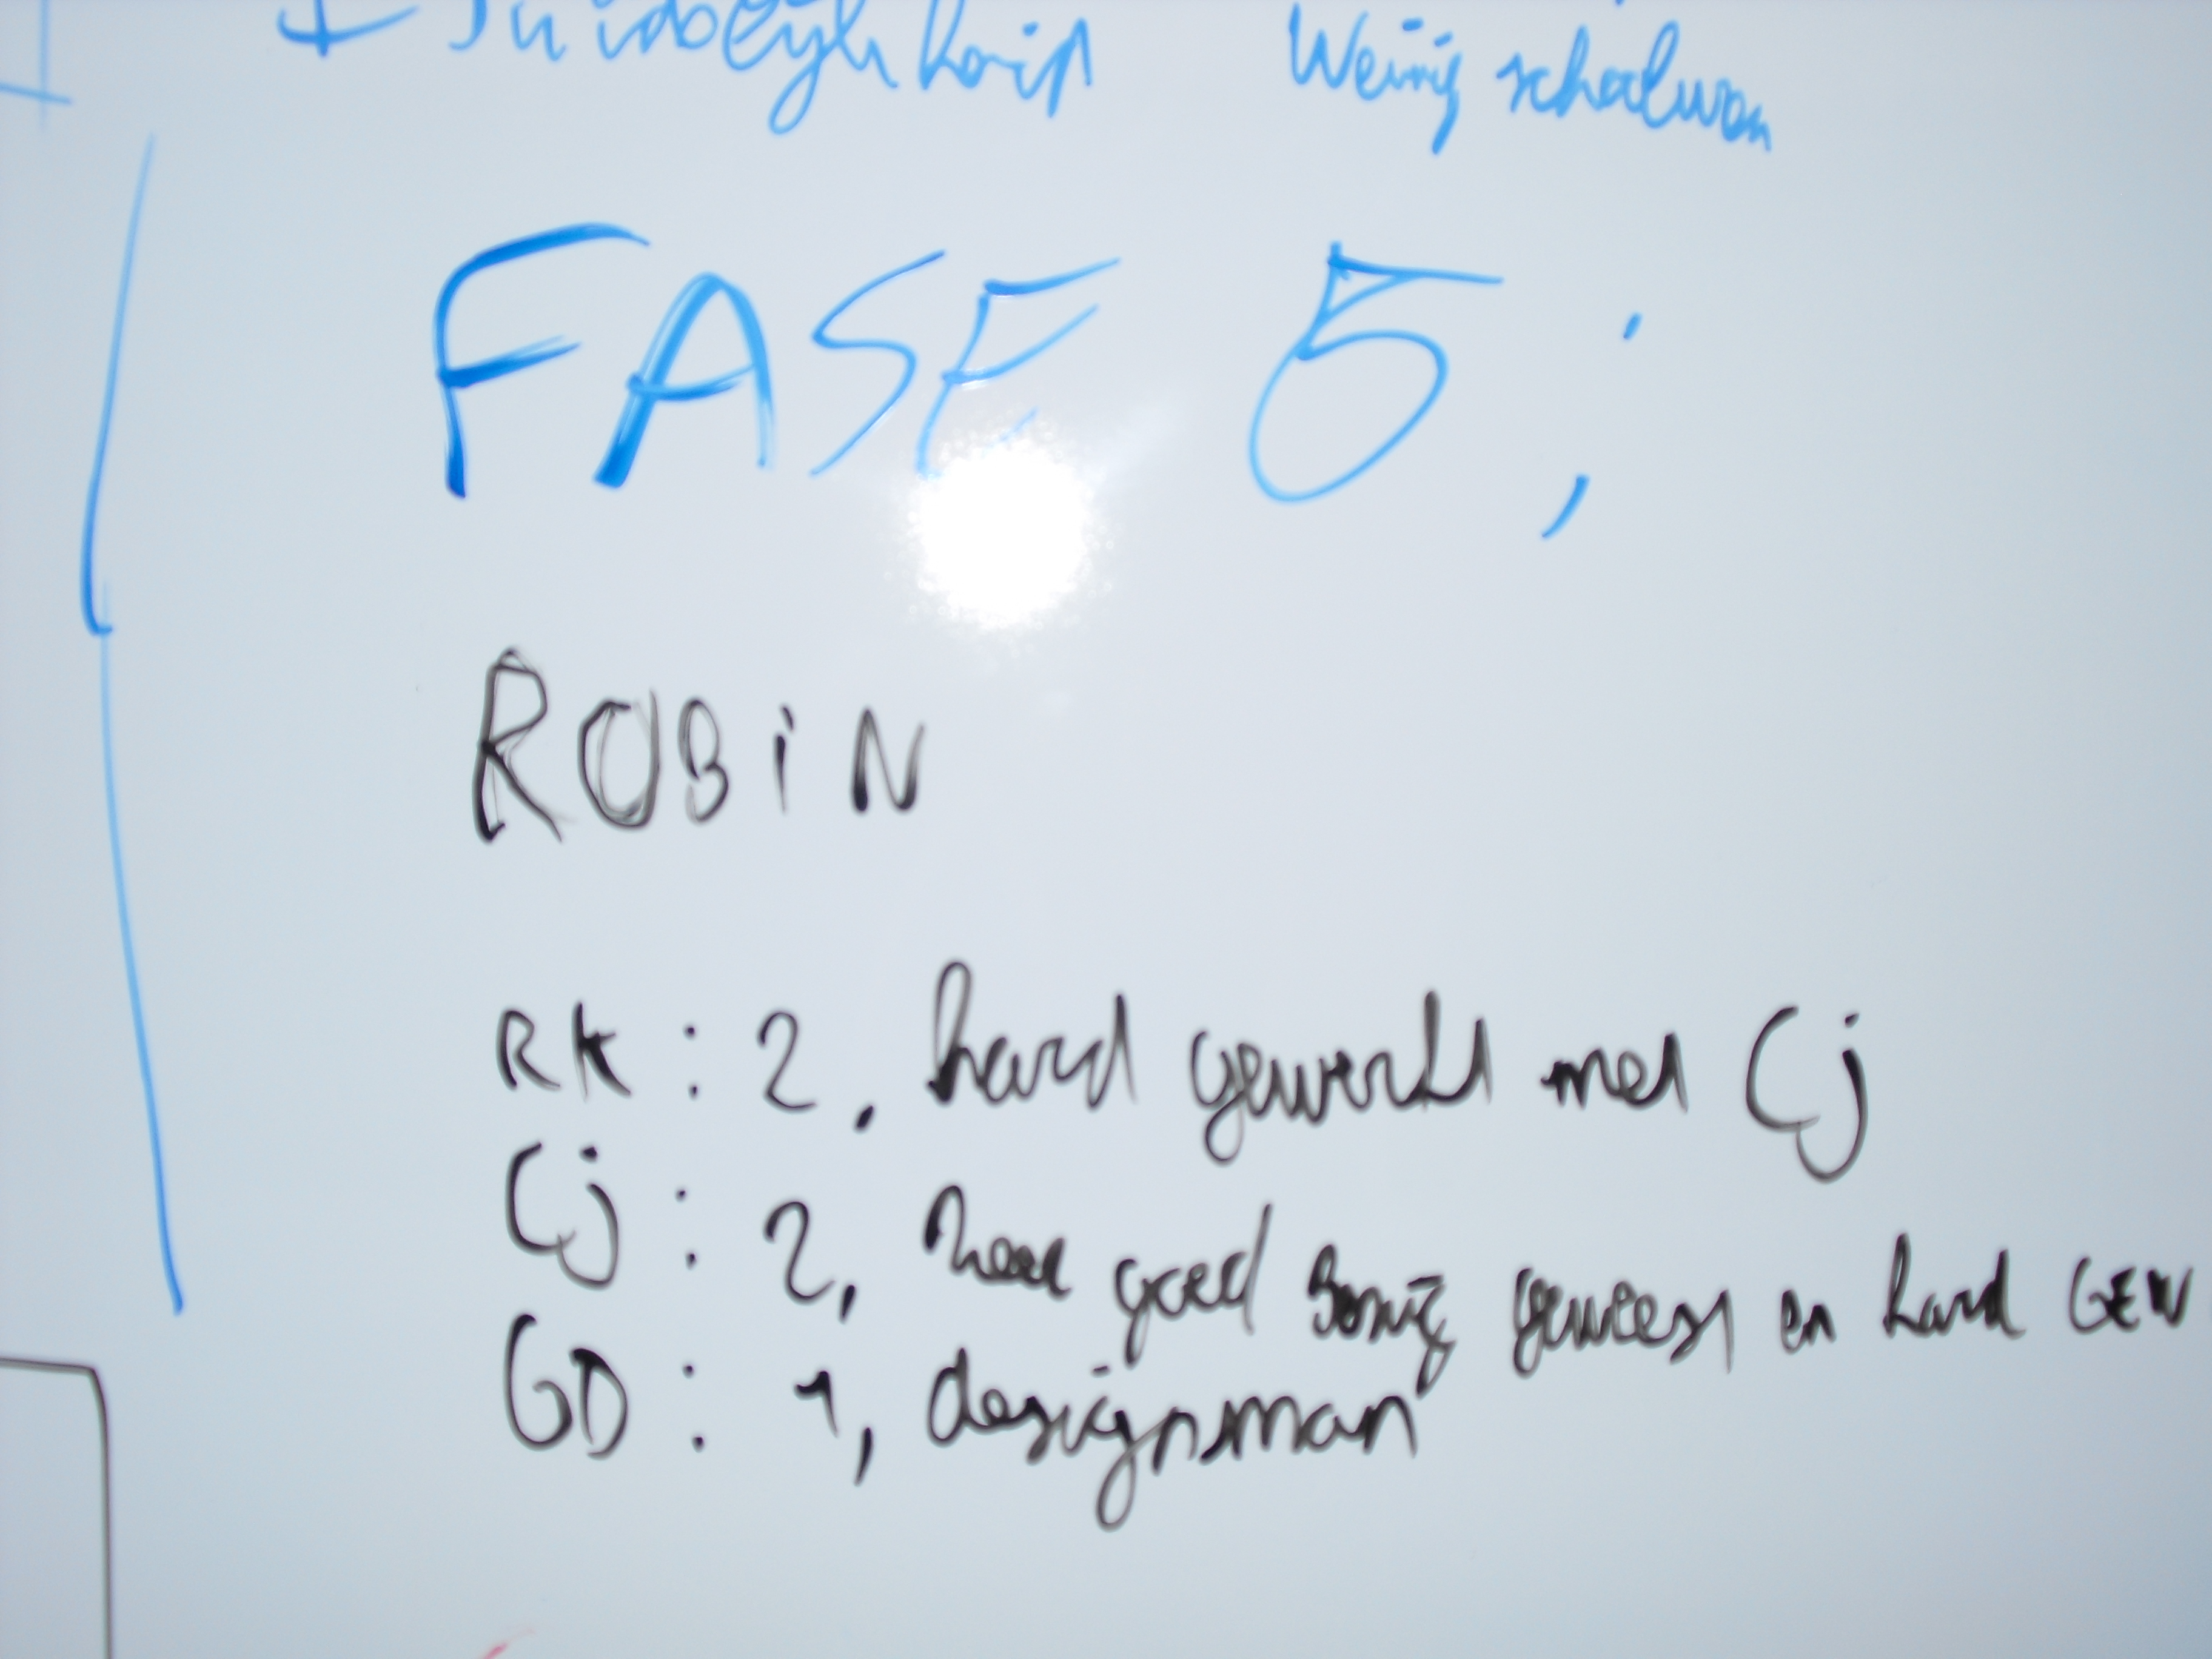 + duidelijkheid Weinig schaalwaa
FASE 5;
ROBiN
RK: 2, hard gewerkt met Cj
Cj: 2, heel goed bezig geweest en hard GEW
GD: 1, designsman